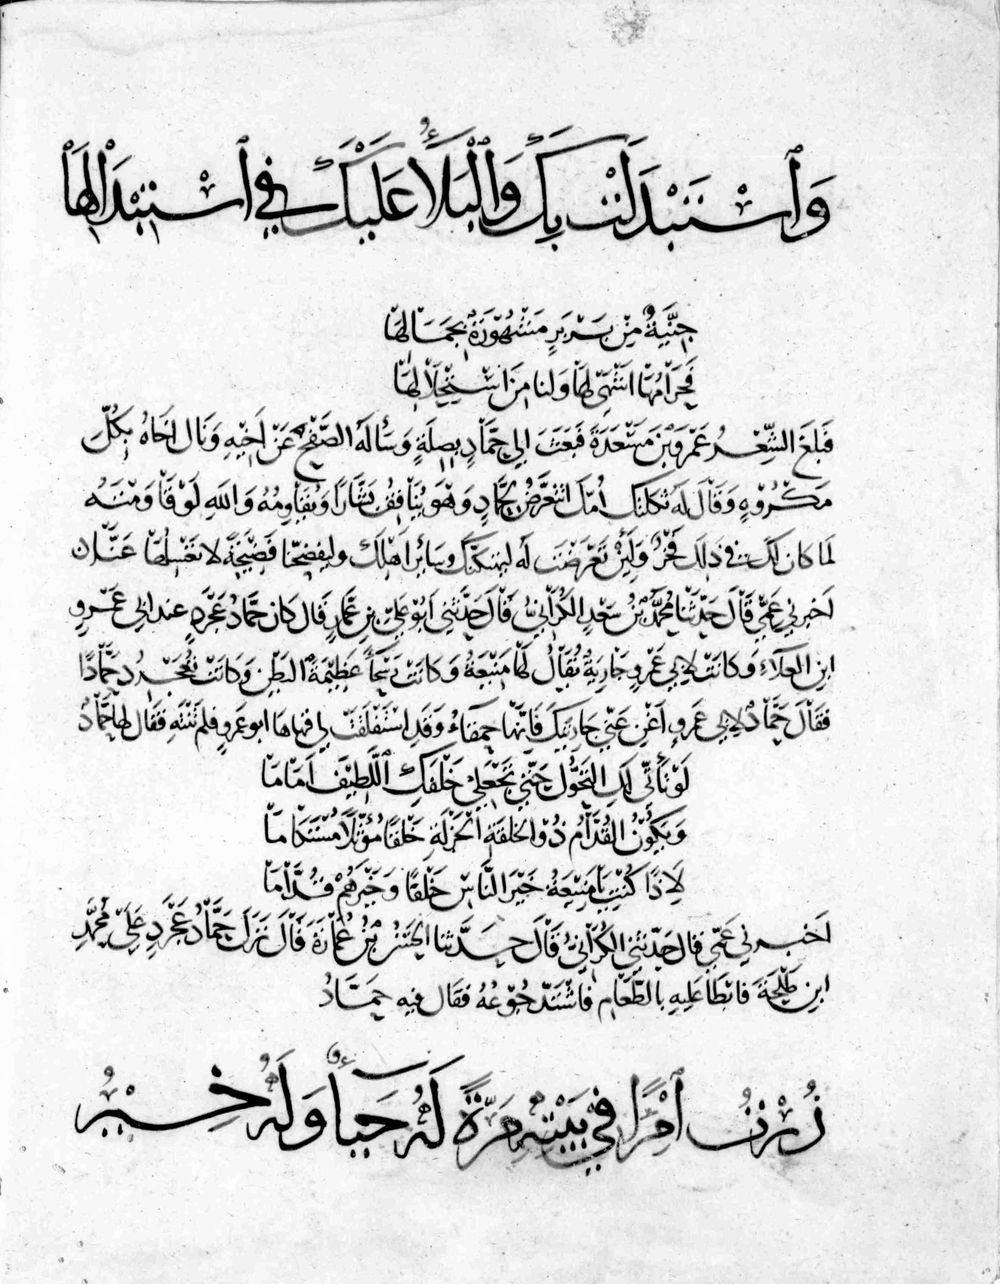 وَاسْتَبْدَلَتْ بِكَ وَالْبَلَاءُ عَلَيْكَ فِي اسْتِبْدَالِهَا
جِنِّيَّةٌ مِنْ بَرْبَرٍ مَشْهُورَةٌ بِجَمَالِهَا
فَحَرَامُهَا اشْهَى لَهَا وَلنا مِنَ اسْتِحْلَالِهَا
فَبَلغَ الشِّعْرُ عَمْرَو بْنَ مَسْعَدَةَ فَبَعَثَ الي حَمَّادٍ بِصِلَةٍ وَسَأَلَهُ الصَّفْحَ عَنْ اَخِيهِ وَنَالَ اخَاهُ بِكُلِّ
مَكْرُوهٍ وَقَالَ لَهُ ثكلتك اُمّك اتَتَعَرَّضُ لِحَمَّادٍ وَهُوَ يُنَاقِفُ بَشَّارًا وَيُقَاوِمُهُ وَاللهِ لَوْ قَاوَمْتَهُ
لَمَا كانَ لكَ في ذلكَ فَخْرٌ وَلَئِنْ تَعَرَّضْتَ لَهُ ليَهتكنَّكَ وسَائِرَ اهْلِكَ وليَفضحَنا فَضِيحَةً لا نَغْسلُهَا عَنَّا
اَخبرني عَمِّي قَالَ حَدَّثنا مُحَمَّدُ بْنُ سَعْدٍ الكُرَانيُّ قَالَ حَدَّثَني ابُو عَلِيِّ بْنُ عَمَّارٍ قَالَ كانَ حَمَّادُ عَجْرَدٍ عندَ ابي عَمْرِو
ابنِ العَلَاءِ وَكَانَتْ لابي عَمْرٍو جَارِيَةٌ يُقَالُ لَهَا مَنِيعَةُ وَكَانَتْ رَسْحَاءَ عَظِيمَةَ البَطْنِ وَكَانَتْ تَسْخَرُ بحَمَّادٍ
فَقَالَ حَمَّادٌ لابِي عَمْرٍو اَغْنِ عَنِّي جَارِيَتَكَ فَانَّهَا حَمْقَاءُ وَقَدِ اسْتَقْلَقَتْ لِي فنهاهَا ابو عَمْرٍو فلم تَنْتَهِ فقَالَ لها حَمَّادٌ
لَوْ تَأَتَّى لَكِ التَّحَوُّلُ حَتَّى تَجْعَلِي خَلْفَكِ اللَّطِيفَ اَمَامَا
وَيَكُونُ القُدَّامُ ذُو الخِلْقَةِ الْجَزْلَةِ خَلْفًا مُؤَثَّلًا مُسْتَكَامَا
لاذًا كُنْتِ يَا مَنِيعَةُ خَيْرَ النَّاسِ خَلْفًا وَخَيْرَهُمْ قُدَّامَا
اَخبرني عَمِّي قَالَ حَدَّثَني الكُرَانيُّ قَالَ حَدَّثنا الحَسَنُ بْنُ عُمَارَةَ قَالَ نَزَلَ حَمَّادُ عَجْرَدٍ عَلَى مُحَمَّدِ
ابْنِ طَلْحَةَ فَابْطَا عَلَيْهِ بالطَّعَامِ فَاشْتَدَّ جُوعُهُ فَقَالَ فِيهِ حَمَّادٌ
زُرْتُ امْرَأً فِي بَيْتِهِ مَرَّةً لَهُ حَيَاءٌ وَلَهُ خِيرُ